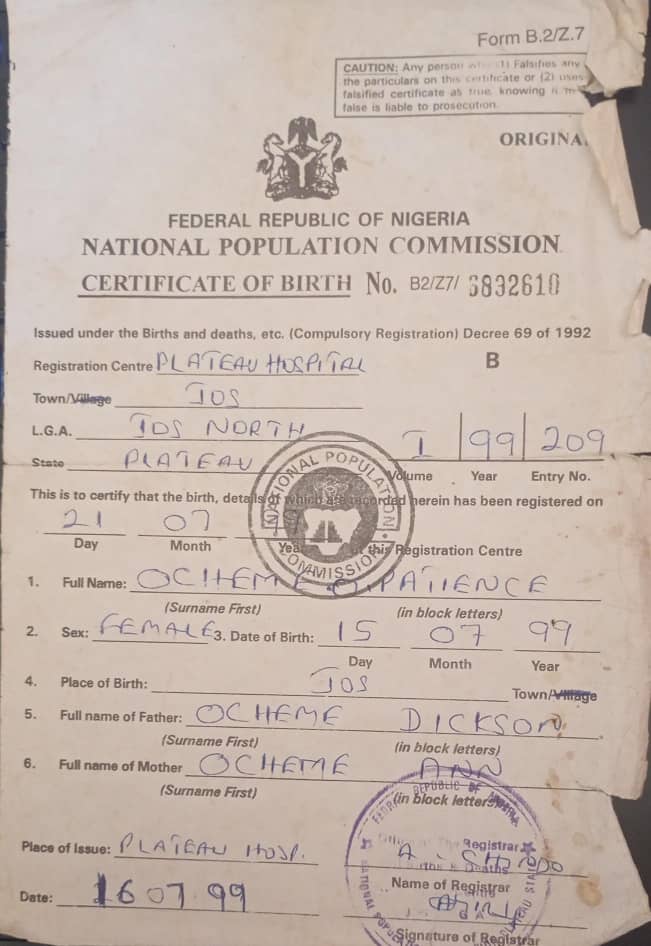 Form B.2/Z.7
CAUTION: Any person (1) Falsifies any
the particulars on this certificate or (2) uses
falsified certificate as true, knowing
false is liable to prosecution.
ORIGINA
FEDERAL REPUBLIC OF NIGERIA
NATIONAL POPULATION COMMISSION
CERTIFICATE OF BIRTH No. B2/Z7/ 6832610
Issued under the Births and deaths, etc. (Compulsory Registration) Decree 69 of 1992
Registration Centre PLATEAU HOSPITAL B
Town/Village JOS
L.G.A. JOS NORTH I 99 209
State PLATEAU Volume Year Entry No.
NATIONAL POPULATION COMMISSION
This is to certify that the birth, details of which are recorded herein has been registered on
21 07
Day Month Year at this Registration Centre
1. Full Name: OCHEME O. PATIENCE
(Surname First) (in block letters)
2. Sex: FEMALE 3. Date of Birth: 15 07 99
Day Month Year
4. Place of Birth: JOS Town/Village
5. Full name of Father: OCHEME DICKSON
(Surname First) (in block letters)
6. Full name of Mother OCHEME ANN
(Surname First) (in block letters)
Place of Issue: PLATEAU HOSP. Registrar
Name of Registrar
Date: 16 07 99
Signature of Registrar